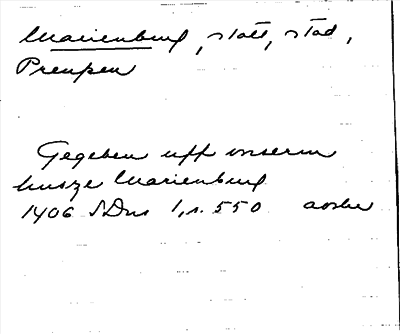 Marienburg, slott, stad,
Preussen
Gegeben uff unserm
husze Marienburg
1406 SDns 1, s. 550